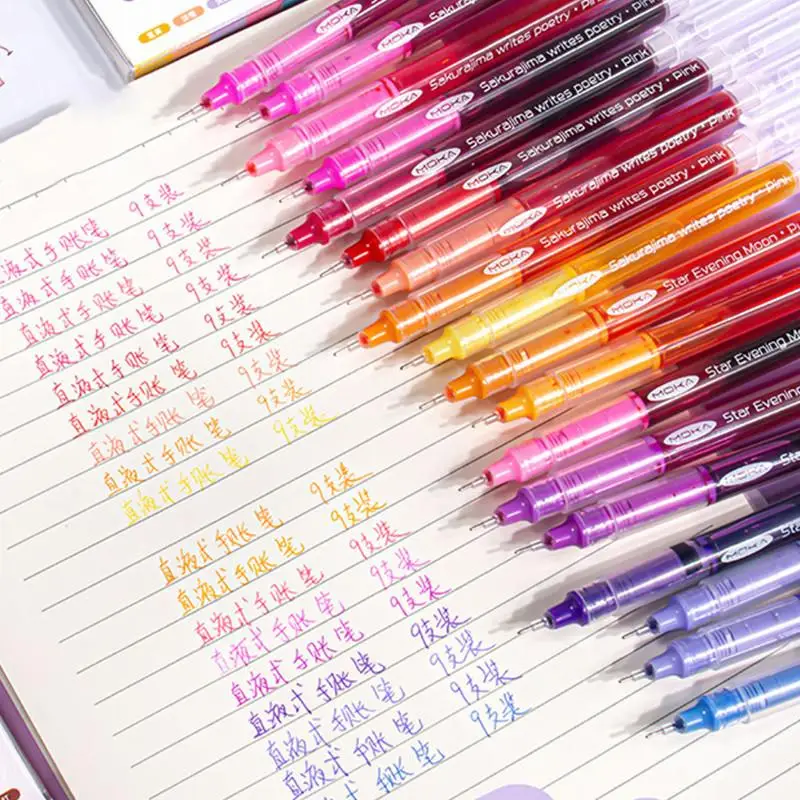 MOKA Sakurajima writes poetry
MOKA Sakurajima writes poetry ·
MOKA Sakurajima writes poetry · Pink
MOKA Sakurajima writes poetry · Pink
MOKA Sakurajima writes poetry · Pink
MOKA Sakurajima writes poetry · Pink
MOKA Sakurajima writes poetry · Pink
MOKA Star Evening Moon
MOKA Star Evening Moon
MOKA Star Evening Moon
MOKA Star Evening
MOKA
MOKA
液式手账笔 9支装
直液式手账笔 9支装
直液式手账笔 9支装
直液式手账笔 9支装
直液式手账笔 9支装
直液式手账笔 9支装
直液式手账笔 9支装
直液式手账笔 9支装
直液式手账笔 9支装
直液式手账笔 9支装
直液式手账笔 9支装
直液式手账笔 9支装
直液式手账笔 9支装
直液式手账笔 9支装
直液式手账笔 9支装
直液式手账笔 9支装
直液式手账笔 9支装
直液式手账笔 9支装